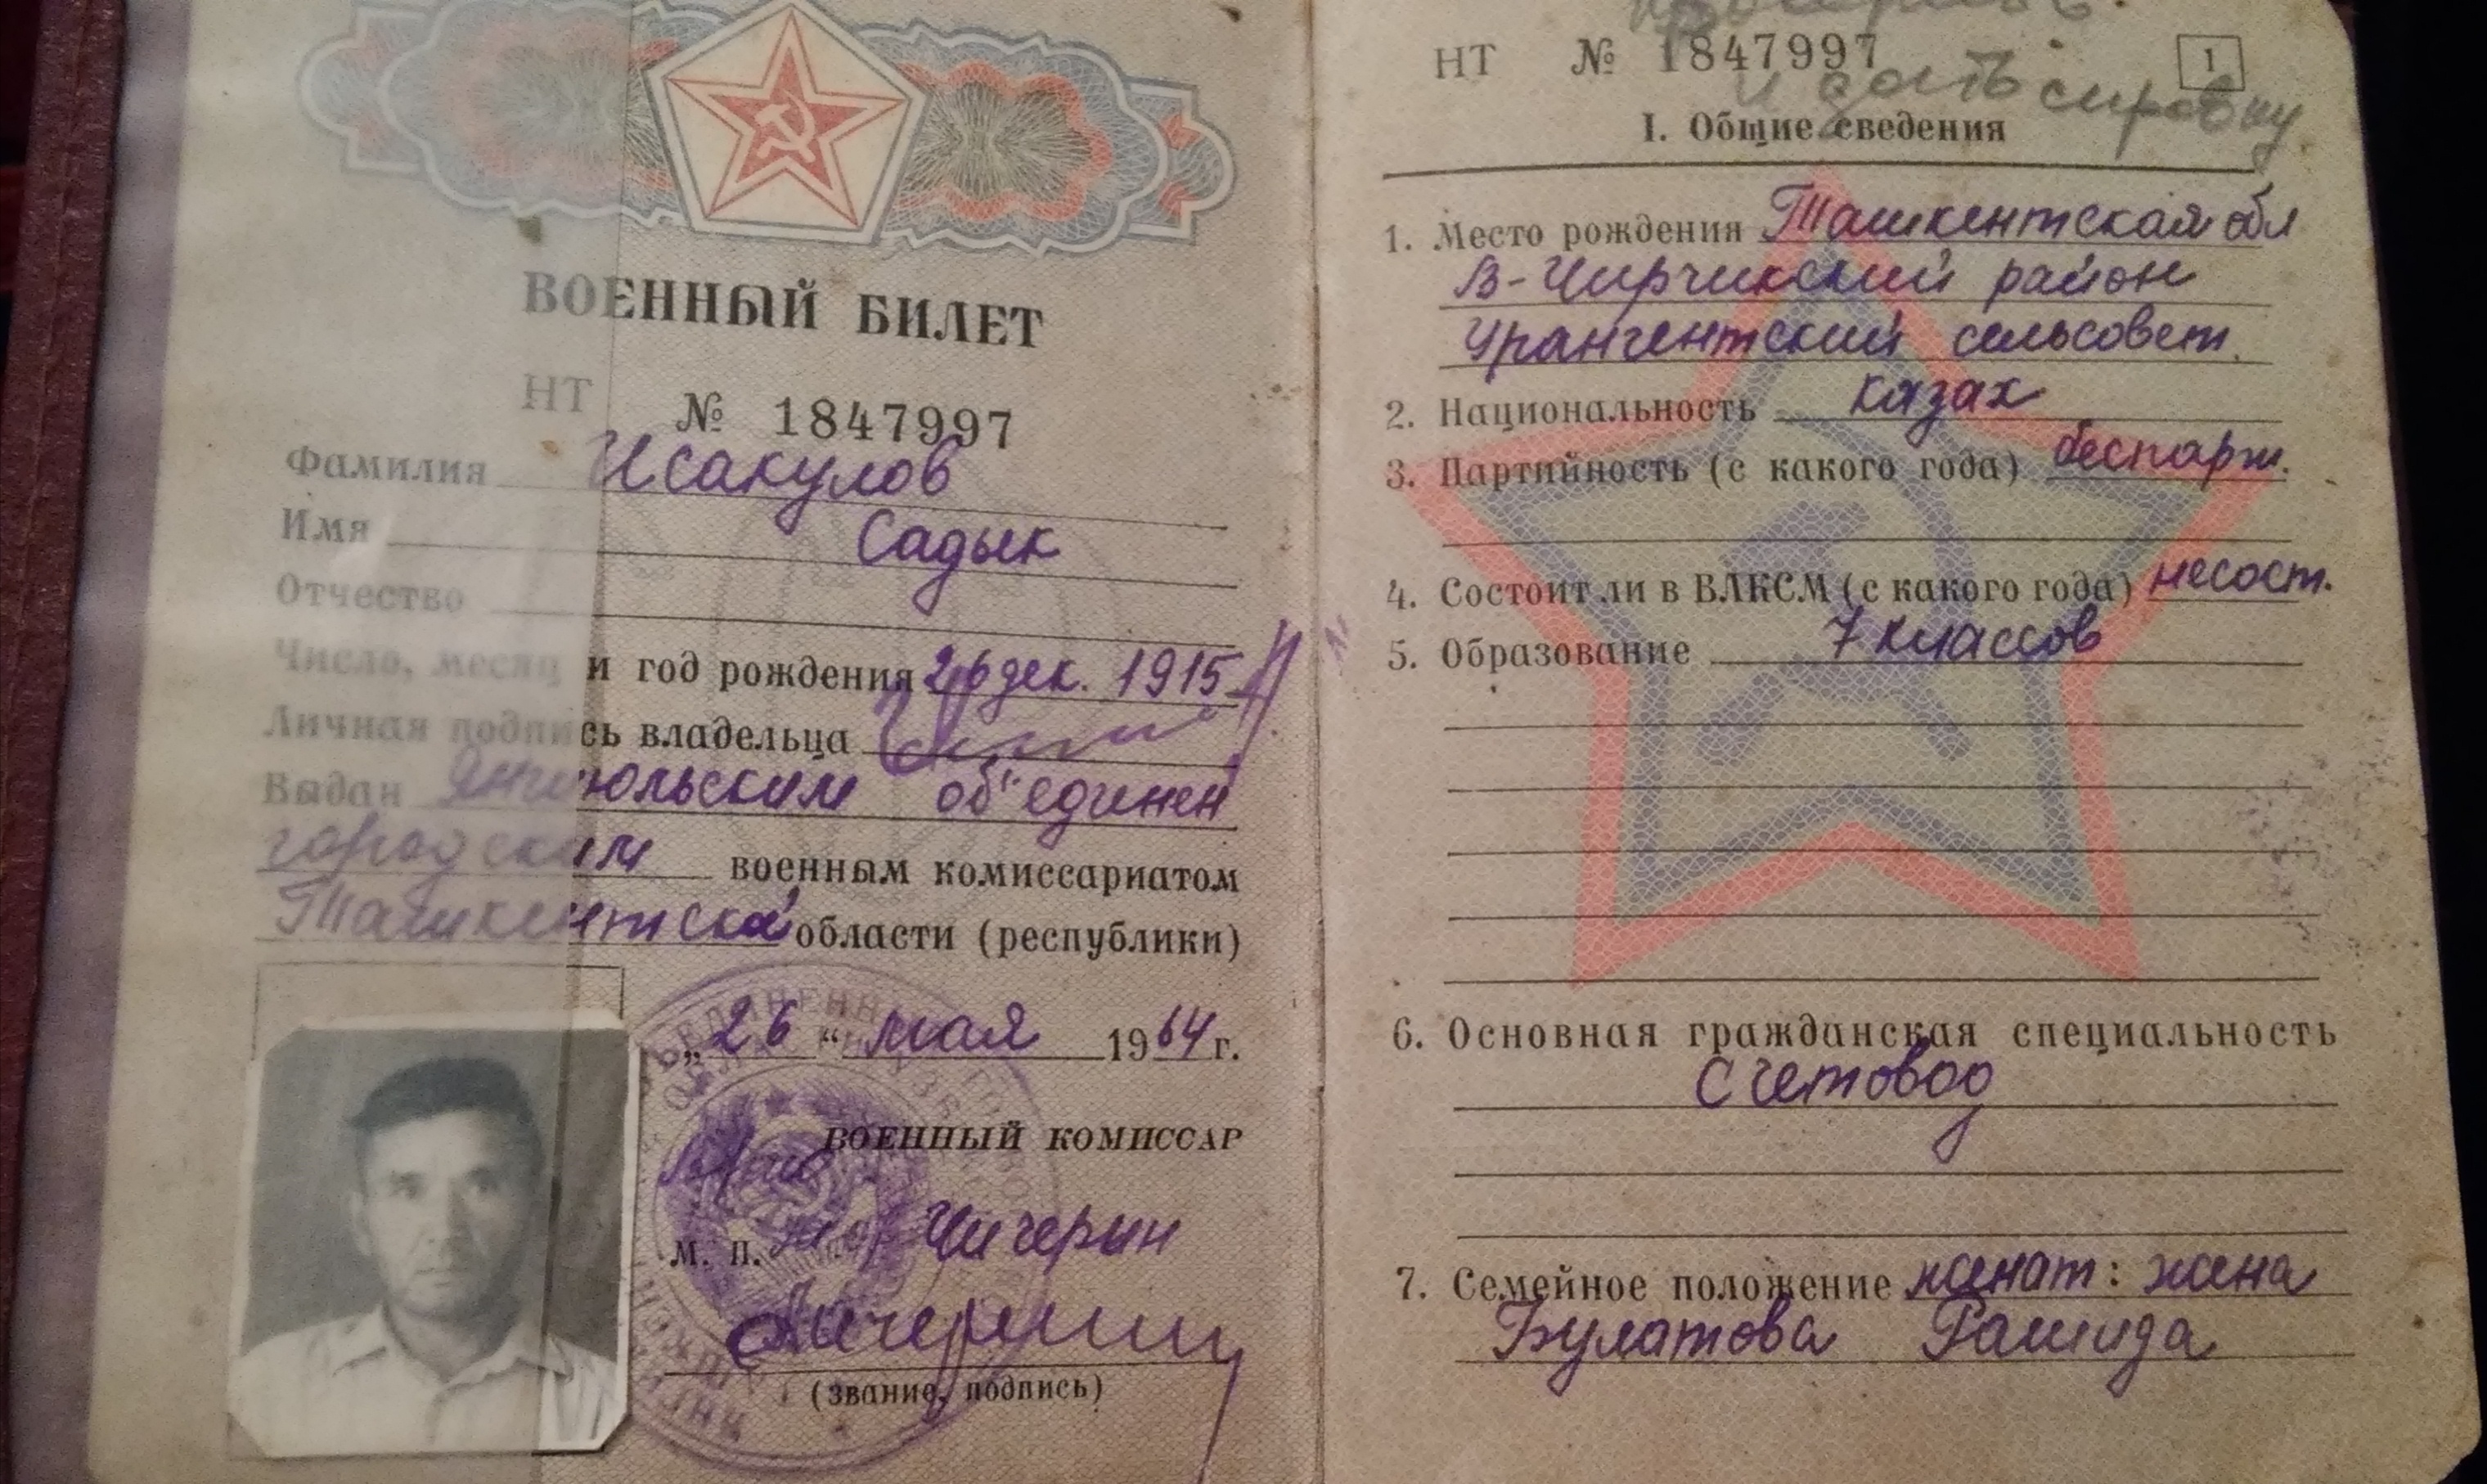 ВОЕННЫЙ БИЛЕТ
НТ № 1847997
Фамилия Исакулов
Имя Садык
Отчество
Число, месяц и год рождения 26 дек. 1915
Личная подпись владельца
Выдан Янгиюльским об"единен
городским военным комиссариатом
Ташкентской области (республики)
„26“ мая 1964 г.
ВОЕННЫЙ КОМИССАР
М. П. Чичерин
(звание, подпись)
НТ № 1847997
1
и дать сировку
I. Общие сведения
1. Место рождения Ташкентская обл
В-Чирчикский район
Урангентский сельсовет.
2. Национальность казах
3. Партийность (с какого года) беспарт.
4. Состоит ли в ВЛКСМ (с какого года) несост.
5. Образование 7 классов
6. Основная гражданская специальность
Счетовод
7. Семейное положение женат: жена
Булатова Рашида